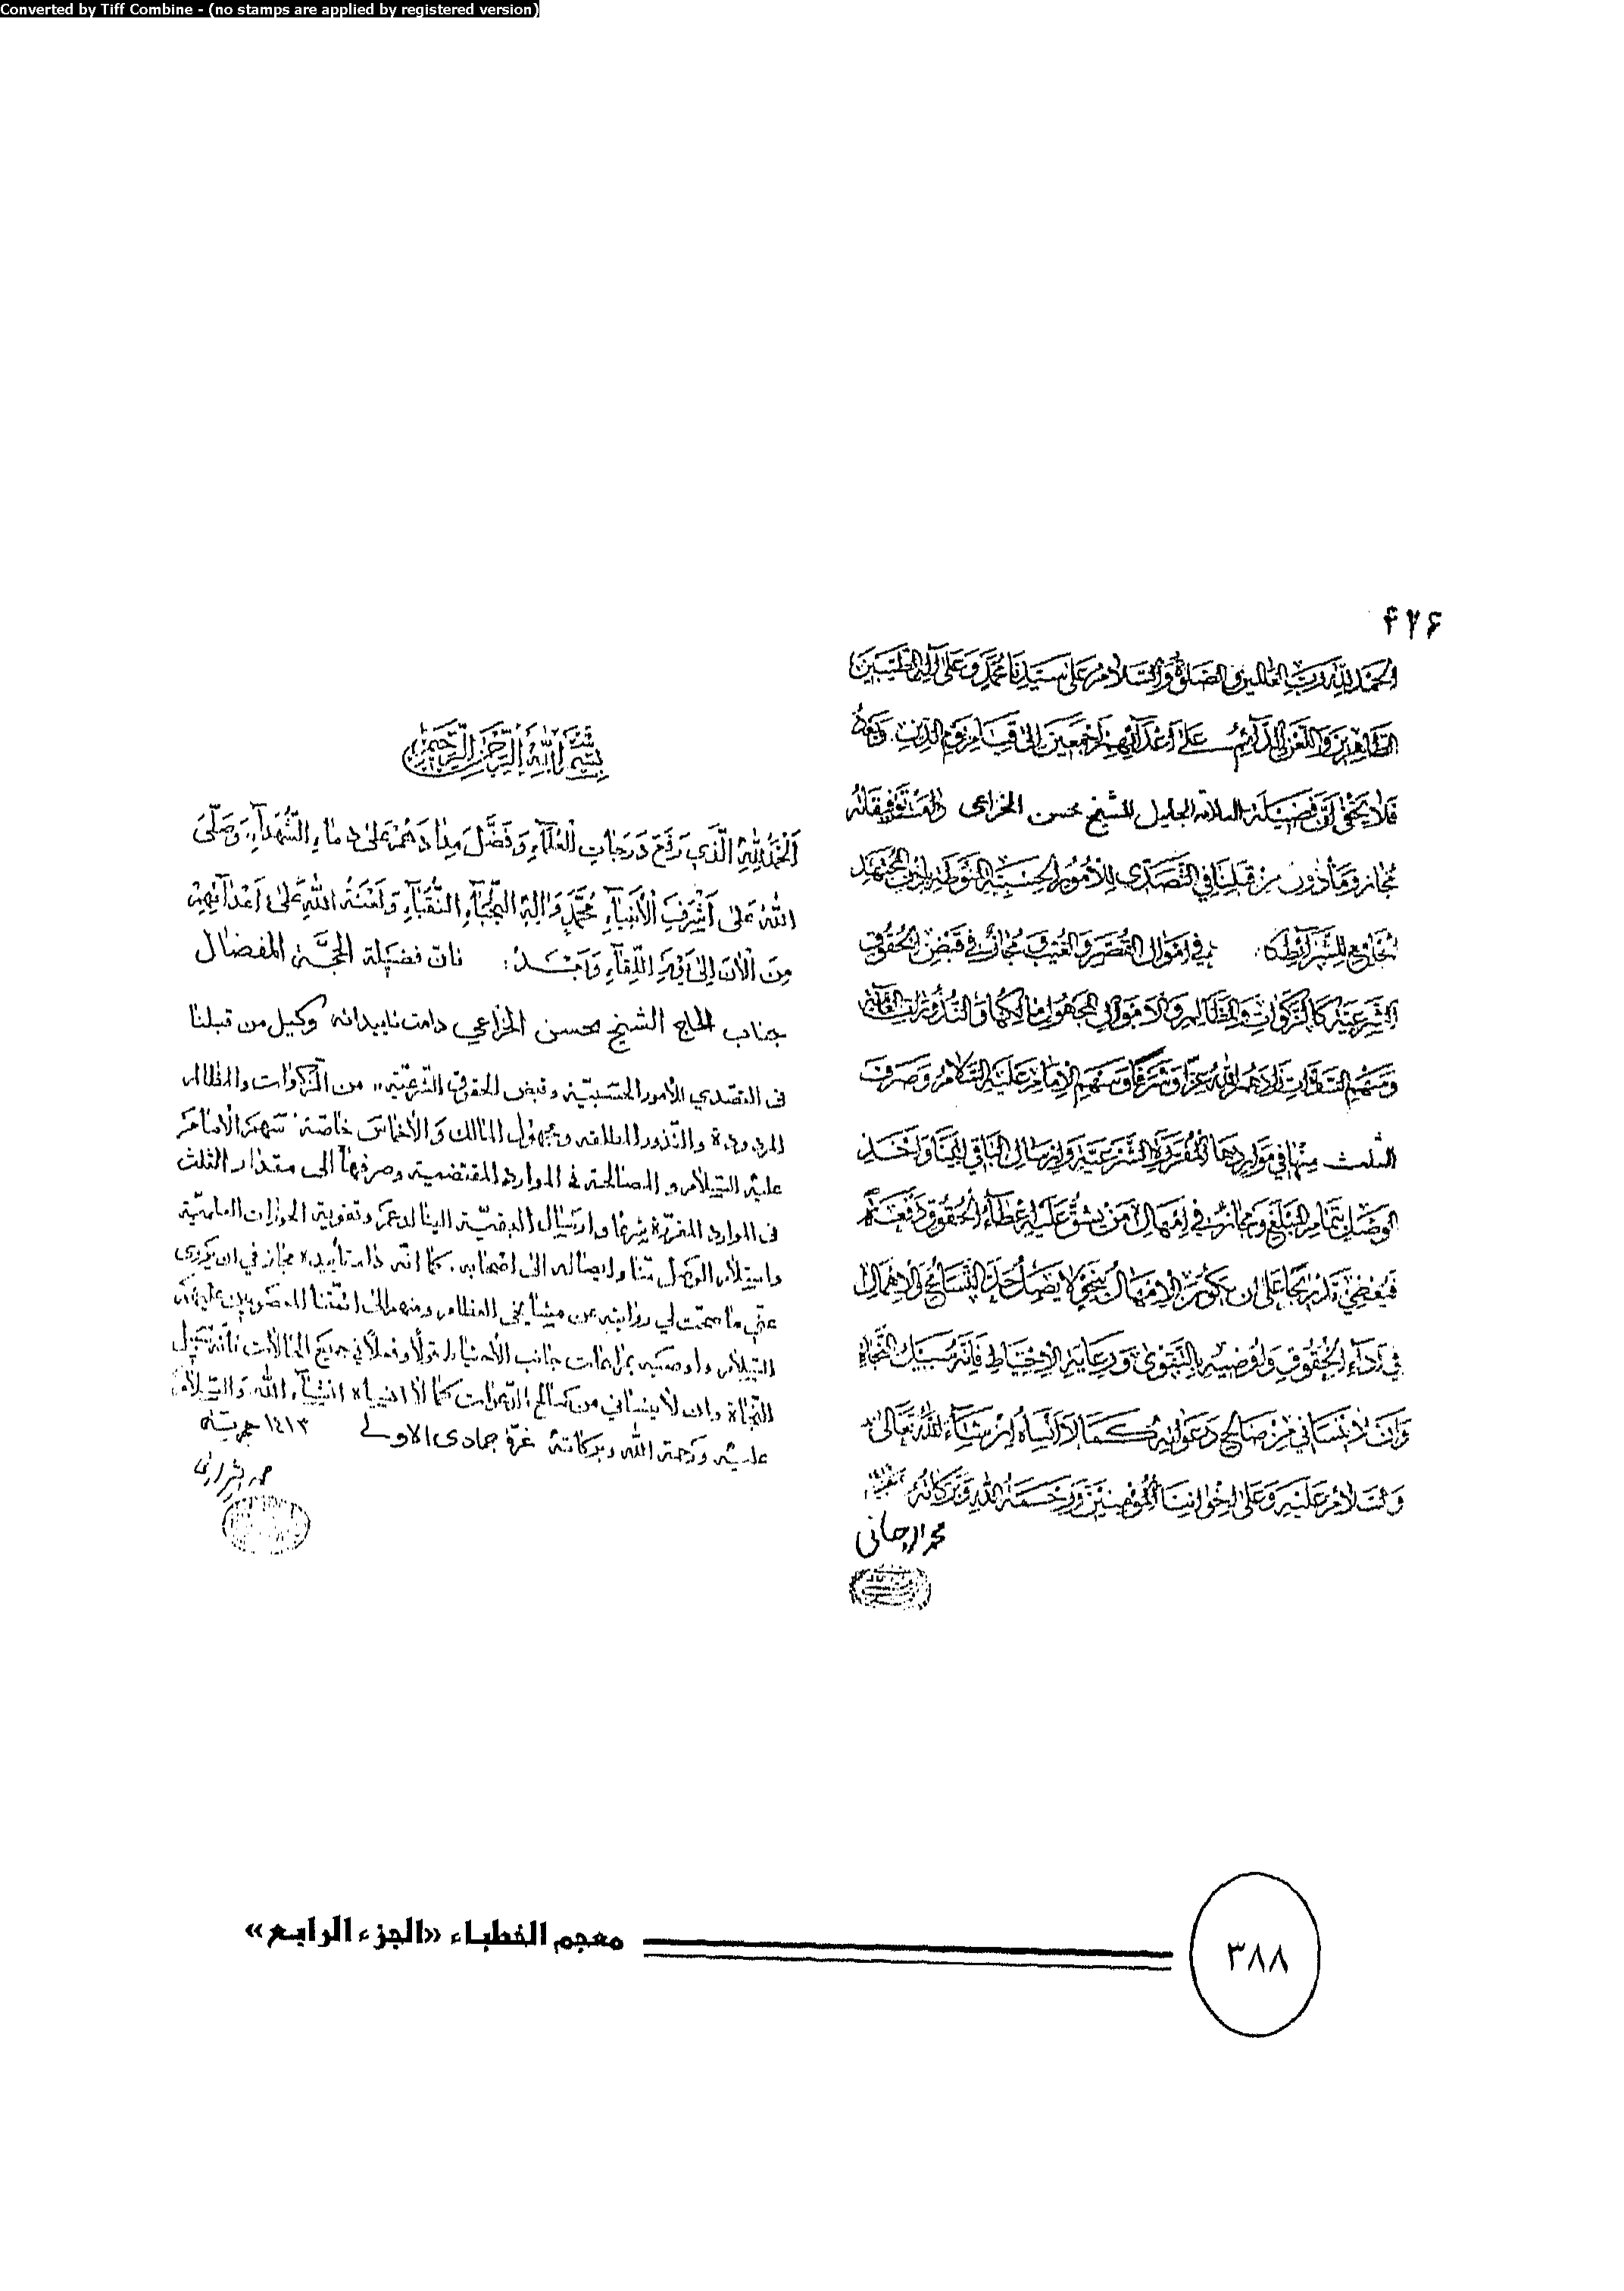 Converted by Tiff Combine - (no stamps are applied by registered version)
۴۲۶
الحمد لله رب العالمین و الصلوة و السلام علی سیدنا محمد و علی آله الطیبین
الطاهرین و اللعن الدائم علی اعدائهم اجمعین الی قیام یوم الدین. وبعد
فلا یخفی ان فضیلة العلامة الجلیل الشیخ محسن الخزاعی دامت توفیقاته
مجاز و مأذون من قبلنا فی التصدی للأمور الحسبیة المنوطة باذن المجتهد
الجامع للشرائط کما فی اموال القصر و الغیب و مجاز فی قبض الحقوق
الشرعیة کالزکوات و المظالم و الاموال المجهول مالکها و النذورات العامة
و سهم السادات زادهم الله عزا و شرفا و سهم الامام علیه السلام و صرف
الثلث منها فی مواردها المقررة الشرعیة و ارسال الباقی الینا و اخذ
الوصل بتمام المبلغ و مجاز فی امهال من یشق علیه اعطاء الحقوق دفعة
فیعطی تدریجا علی ان یکون الامهال بنحو لا یصل حد التسامح و الاهمال
فی اداء الحقوق و اوصیه بالتقوی و رعایة الاحتیاط فانه سبیل النجاة
و ان لا ینسانی من صالح دعواته کما لا انساه ان شاء الله تعالی
و السلام علیه و علی اخواننا المؤمنین و رحمة الله و برکاته
محمد الروحانی
بسم الله الرحمن الرحیم
الحمد لله الذی رفع درجات العلماء و فضل مدادهم علی دماء الشهداء، و صلی
الله علی اشرف الأنبیاء محمد و اله النجباء النقباء و لعنة الله علی اعدائهم
من الآن الی یوم اللقاء و بعد: فان فضیلة الحجة المفضال
جناب الحاج الشیخ محسن الخزاعی دامت تاییداته وکیل من قبلنا
فی التصدی للأمور الحسبیة و قبض الحقوق الشرعیة، من الزکوات و المظالم
المردودة و النذور المطلقه و مجهول المالک و الأخماس خاصة سهم الأمام
علیه السلام و المصالحة فی الموارد المقتضیة و صرفها الی مقدار الثلث
فی الموارد المقررة شرعا و ارسال البقیة الینا لدعم و تقویة الحوزات العلمیة
و استلام الوصول منا و ایصاله الی اصحابه. کما انه دام تأییده مجاز فی ان یروی
عنی ما صحت لی روایته عن مشایخی العظام و منهم الی ائمتنا المعصومین علیهم
السلام و اوصیه بمراعات جانب الأحتیاط قولا و فعلا فی جمیع الحالات فانه سبیل
النجاة و ان لا ینسانی من صالح الدعوات کما لا انساه انشاء الله و السلام
علیه و رحمة الله و برکاته غرة جمادی الاولی ١٤١٣ هجریة
محمد الشیرازی
معجم الخطباء «الجزء الرابع»
٣٨٨